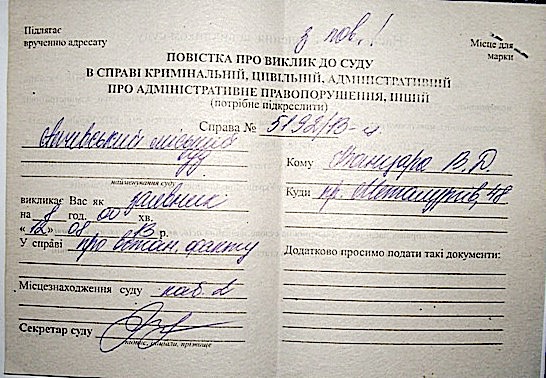 з пов.!
Підлягає
врученню адресату
Місце для
марки
ПОВІСТКА ПРО ВИКЛИК ДО СУДУ
В СПРАВІ КРИМІНАЛЬНІЙ, ЦИВІЛЬНІЙ, АДМІНІСТРАТИВНІЙ
ПРО АДМІНІСТРАТИВНЕ ПРАВОПОРУШЕННЯ, ІНШІЙ
(потрібне підкреслити)
Справа № 5192/13-ц
Алчевський міський
суд
найменування суду
викликає Вас як заявник
на 8 год. 00 хв.
«12» 08 13 р.
У справі про встан. факту
Місцезнаходження суду каб. 2
Секретар суду
підпис, ініціали, прізвище
Кому В. Д.
Куди пр. Металургів, 48
Додатково просимо подати такі документи: